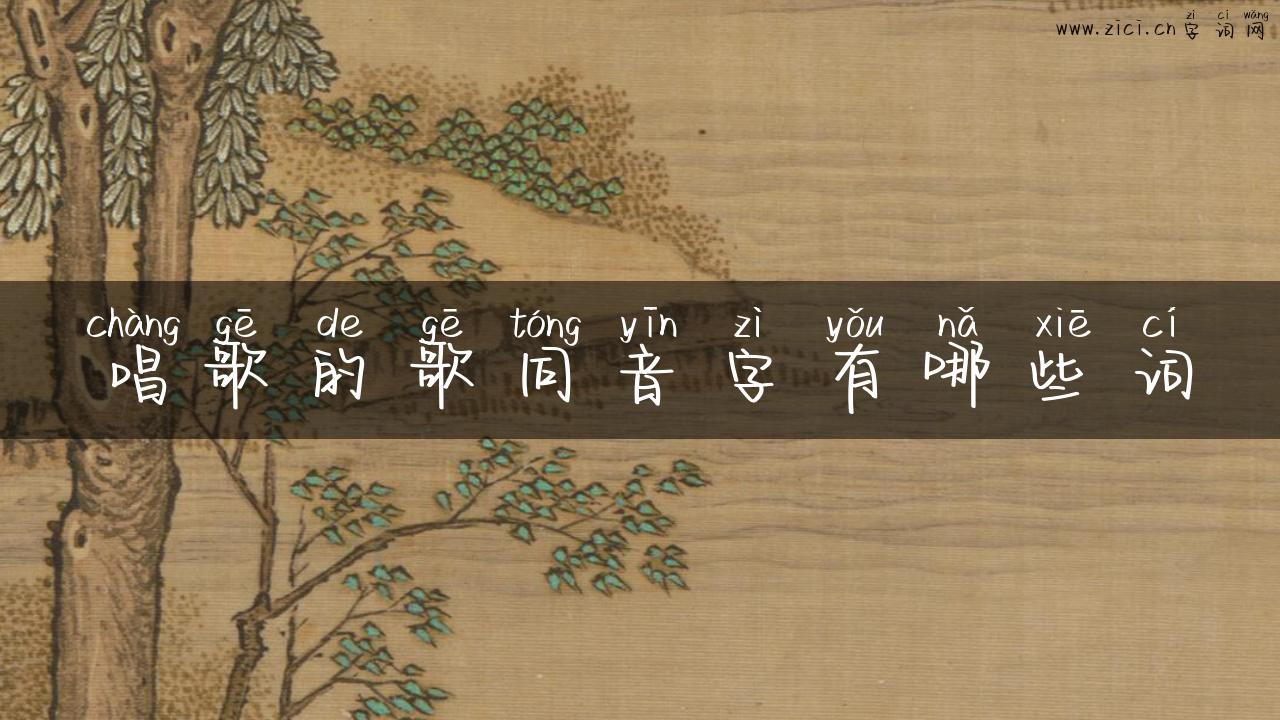 zì cí wǎng
www.zici.cn 字词网
chàng gē de gē tóng yīn zì yǒu nǎ xiē cí
唱歌的歌同音字有哪些词